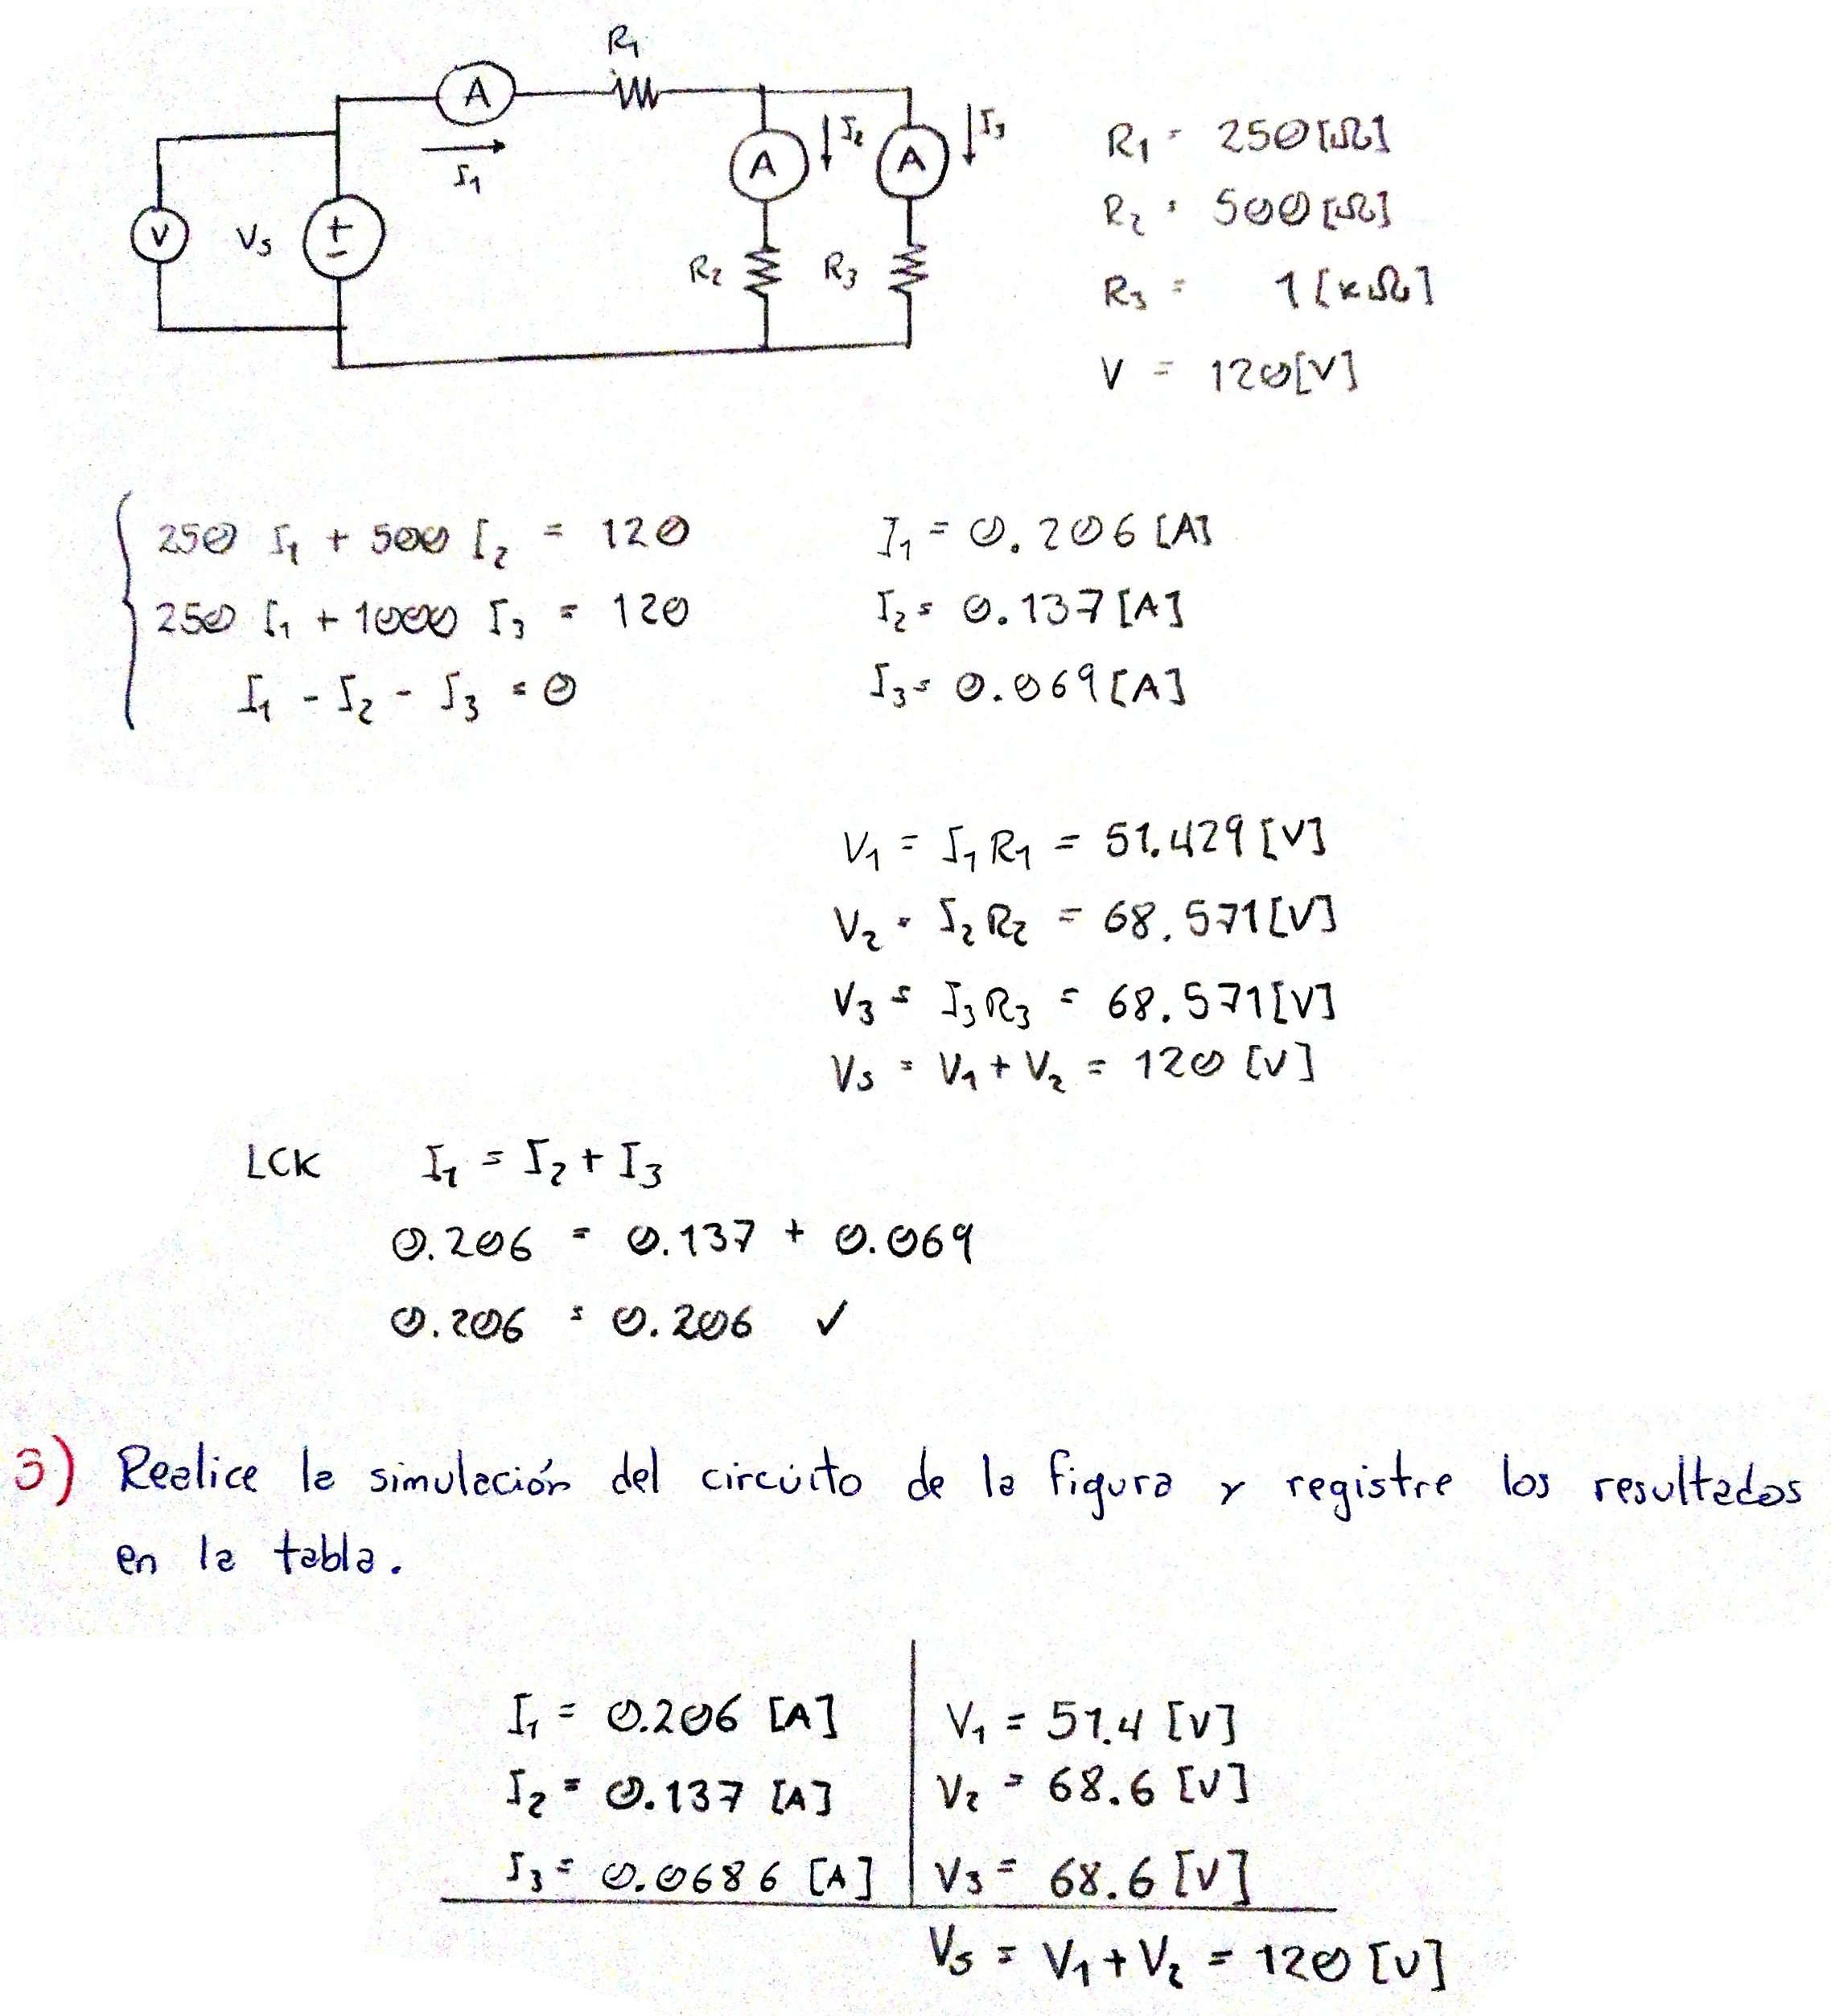 R₁
A
I₁
V
Vs
+
-
A
I₂
A
I₃
R₂
R₃
R₁ = 250[Ω]
R₂ = 500[Ω]
R₃ = 1[kΩ]
V = 120[V]
250 I₁ + 500 I₂ = 120
250 I₁ + 1000 I₃ = 120
I₁ - I₂ - I₃ = 0
I₁ = 0.206 [A]
I₂ = 0.137 [A]
I₃ = 0.069 [A]
V₁ = I₁ R₁ = 51.429 [V]
V₂ = I₂ R₂ = 68.571 [V]
V₃ = I₃ R₃ = 68.571 [V]
Vs = V₁ + V₂ = 120 [V]
LCK I₁ = I₂ + I₃
0.206 = 0.137 + 0.069
0.206 = 0.206 ✓
3) Realice la simulación del circuito de la figura y registre los resultados
en la tabla.
I₁ = 0.206 [A] V₁ = 51.4 [V]
I₂ = 0.137 [A] V₂ = 68.6 [V]
I₃ = 0.0686 [A] V₃ = 68.6 [V]
Vs = V₁ + V₂ = 120 [V]